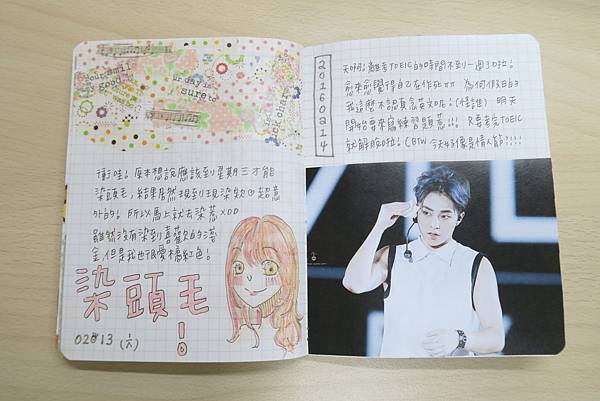 your smile
is good
ur day is
surete
衝哇！原本想說應該到星期三才能
染頭毛，結果居然現到現染欸 超意
外的！所以馬上就去染惹XDD
雖然沒有染到喜歡的淺
金，但是我也很愛橘紅色！
染頭毛！
0213 (六)
20160214
天啊！離考TOEIC的時間不到一週了啦！
愈來愈覺得自己在作死 為何假日的
我這麼不認真念英文呢！明天
開始要來寫練習題惹！！！只要考完TOEIC
就解脫啦！(BTW 今天好像是情人節？！！！